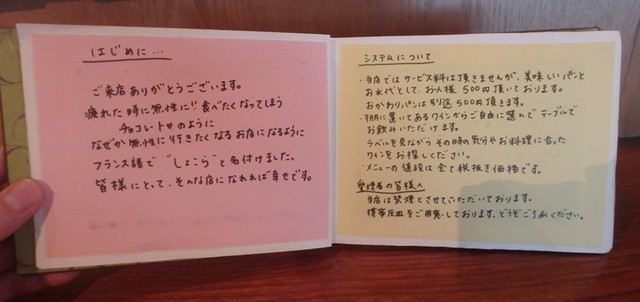 はじめに…
ご来店ありがとうございます。
疲れた時に無性に!!食べたくなってしまう
チョコレートのように
なぜか無性に行きたくなるお店になるように
フランス語で“しょこら”と名付けました。
皆様にとって、そんな店になれれば幸せです。
システムについて
・当店ではサービス料は頂きませんが、美味しいパンと
お水代として、お人様500円頂いております。
おかわりパンは別途500円頂きます。
・棚に置いてあるワインからご自由に選んでテーブルで
お飲みいただけます。
ラベルを見ながらその時の気分やお料理に合った
ワインをお探しください。
・メニューの値段は全て税抜き価格です。
愛煙者の皆様へ
当店は禁煙とさせていただいております。
携帯灰皿をご用意しております。どうぞご了承ください。